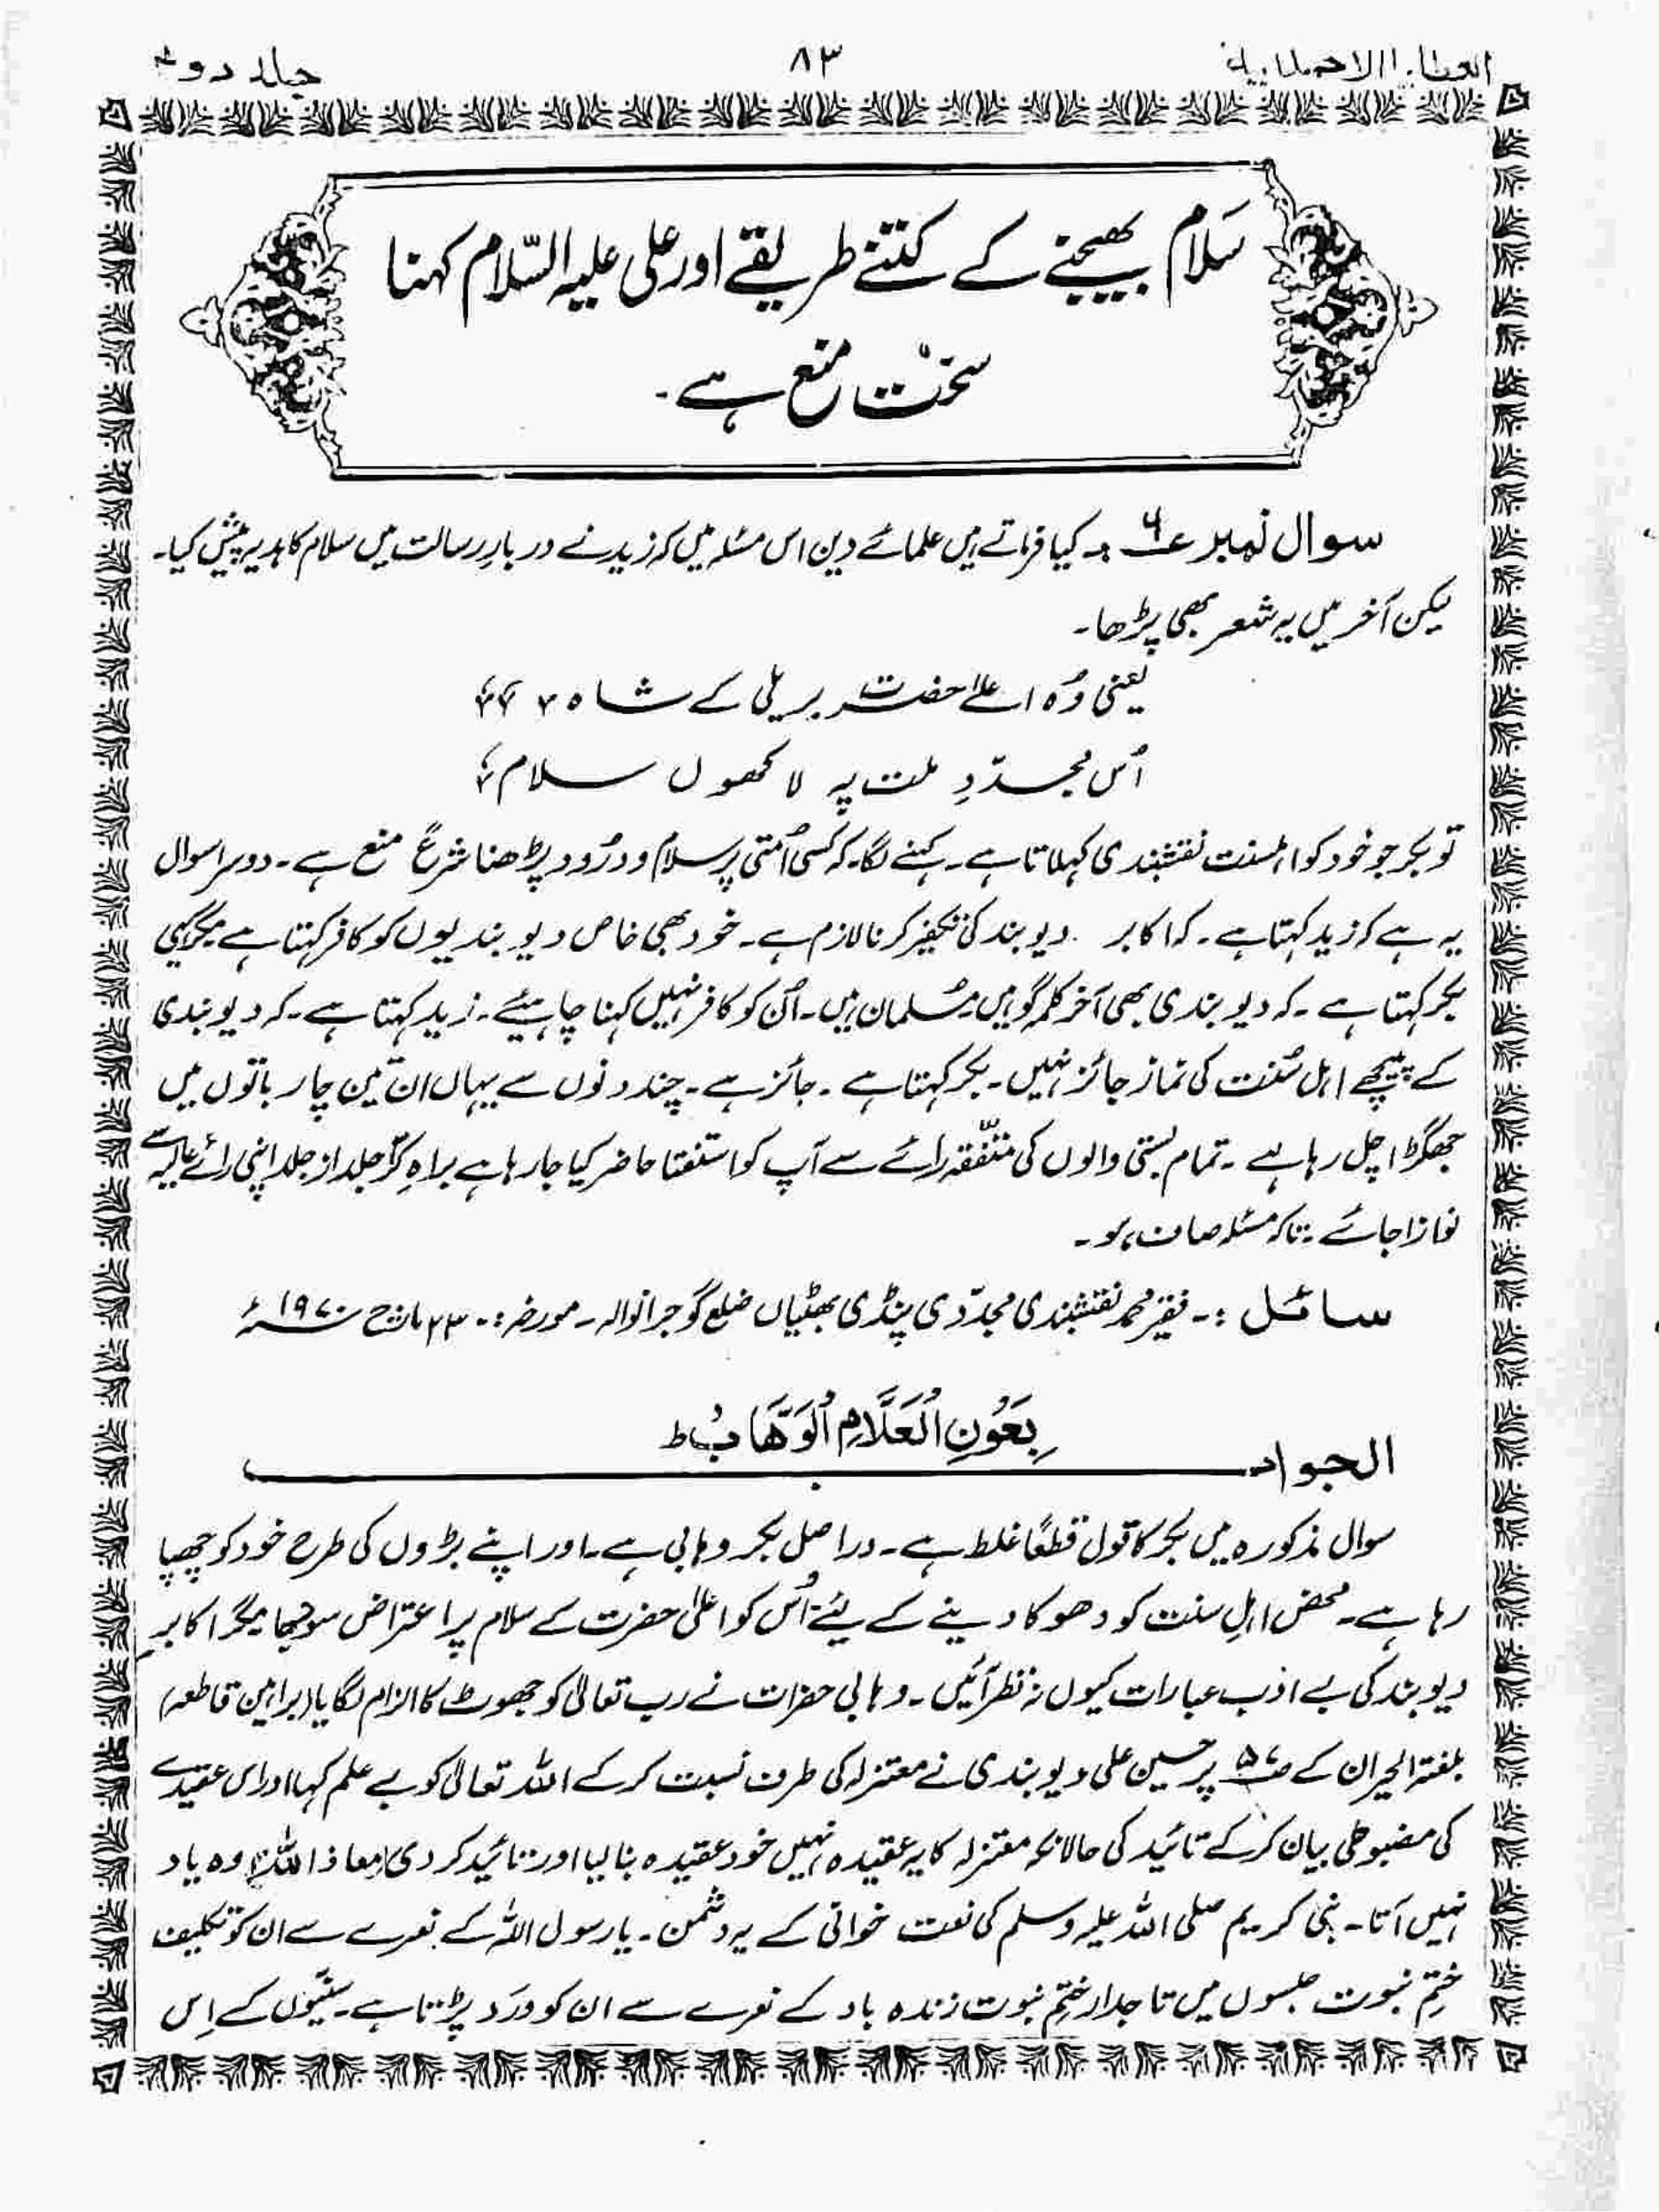 العطایا الاحمدیہ ۸۳ جلد دوم
سَلام بھیجنے کے کتنے طریقے اور علی علیہ السّلام کہنا
سخت منع ہے۔
سوال نمبر ۶ :۔ کیا فرماتے ہیں علمائے دین اس مسئلہ میں کہ زید نے دربارِ رسالت میں سلام کا ہدیہ پیش کیا۔
لیکن آخر میں یہ شعر بھی پڑھا۔
یعنی وُہ اعلےٰ حضرت بریلی کے شاہ
اُس مجدّدِ ملت پہ لاکھوں سلام
تو بکر جو خود کو اہلسنت نقشبندی کہلاتا ہے۔ کہنے لگا۔ کہ کسی اُمتی پر سلام و درُود پڑھنا شرعًا منع ہے۔ دوسرا سوال
یہ ہے کہ زید کہتا ہے۔ کہ اکابر دیوبند کی تکفیر کرنا لازم ہے۔ خود بھی خاص دیوبندیوں کو کافر کہتا ہے مگر یہی
بکر کہتا ہے۔ کہ دیوبندی بھی آخر کلمہ گو ہیں مُسلمان ہیں۔ اُن کو کافر نہیں کہنا چاہیئے۔ زید کہتا ہے۔ کہ دیوبندی
کے پیچھے اہل سُنت کی نماز جائز نہیں۔ بکر کہتا ہے۔ جائز ہے۔ چند دنوں سے یہاں ان تین چار باتوں میں
جھگڑا چل رہا ہے۔ تمام بستی والوں کی متفّقہ رائے سے آپ کو استفتا حاضر کیا جا رہا ہے براہِ کرم جلد از جلد اپنی رائے عالیہ سے
نوازا جائے۔ تاکہ مسئلہ صاف ہو۔
سائل :۔ فقیر محمد نقشبندی مجدّدی پنڈی بھٹیاں ضلع گوجرانوالہ۔ مورخہ :۔ ۲۳ مارچ ۱۹۷۰ء
بِعَوْنِ الْعَلَّامِ الْوَهَّابْ ط
الجواب
سوال مذکورہ میں بکر کا قول قطعًا غلط ہے۔ دراصل بکر وہابی ہے۔ اور اپنے بڑوں کی طرح خود کو چھپا
رہا ہے۔ محض اہلِ سنت کو دھوکا دینے کے لیئے اُس کو اعلیٰ حضرت کے سلام پر اعتراض سوجھا۔ مگر اکابرِ
دیوبند کی بے ادب عبارات کیوں نہ نظر آئیں۔ وہابی حضرات نے رب تعالیٰ کو جھوٹ کا الزام لگایا (براہین قاطعہ)
بلغتہ الحیران کے ص۵۷ پر حسین علی دیوبندی نے معتزلہ کی طرف نسبت کر کے اللہ تعالیٰ کو بے علم کہا اور اس عقیدے
کی مضبوطی بیان کر کے تائید کی حالانکہ معتزلہ کا یہ عقیدہ نہیں خود عقیدہ بنا لیا اور تائید کر دی (معاذ اللہ) وہ یاد
نہیں آتا۔ نبی کریم صلی اللہ علیہ وسلم کی نعت خوانی کے یہ دشمن۔ یا رسول اللہ کے نعرے سے ان کو تکلیف
ختمِ نبوت جلسوں میں تاجدار ختمِ نبوت زندہ باد کے نعرے سے ان کو درد پڑتا ہے۔ سنّیوں کے اِس